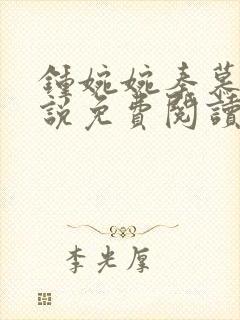 鍾婉婉秦慕
說免費閱讀
李光厚